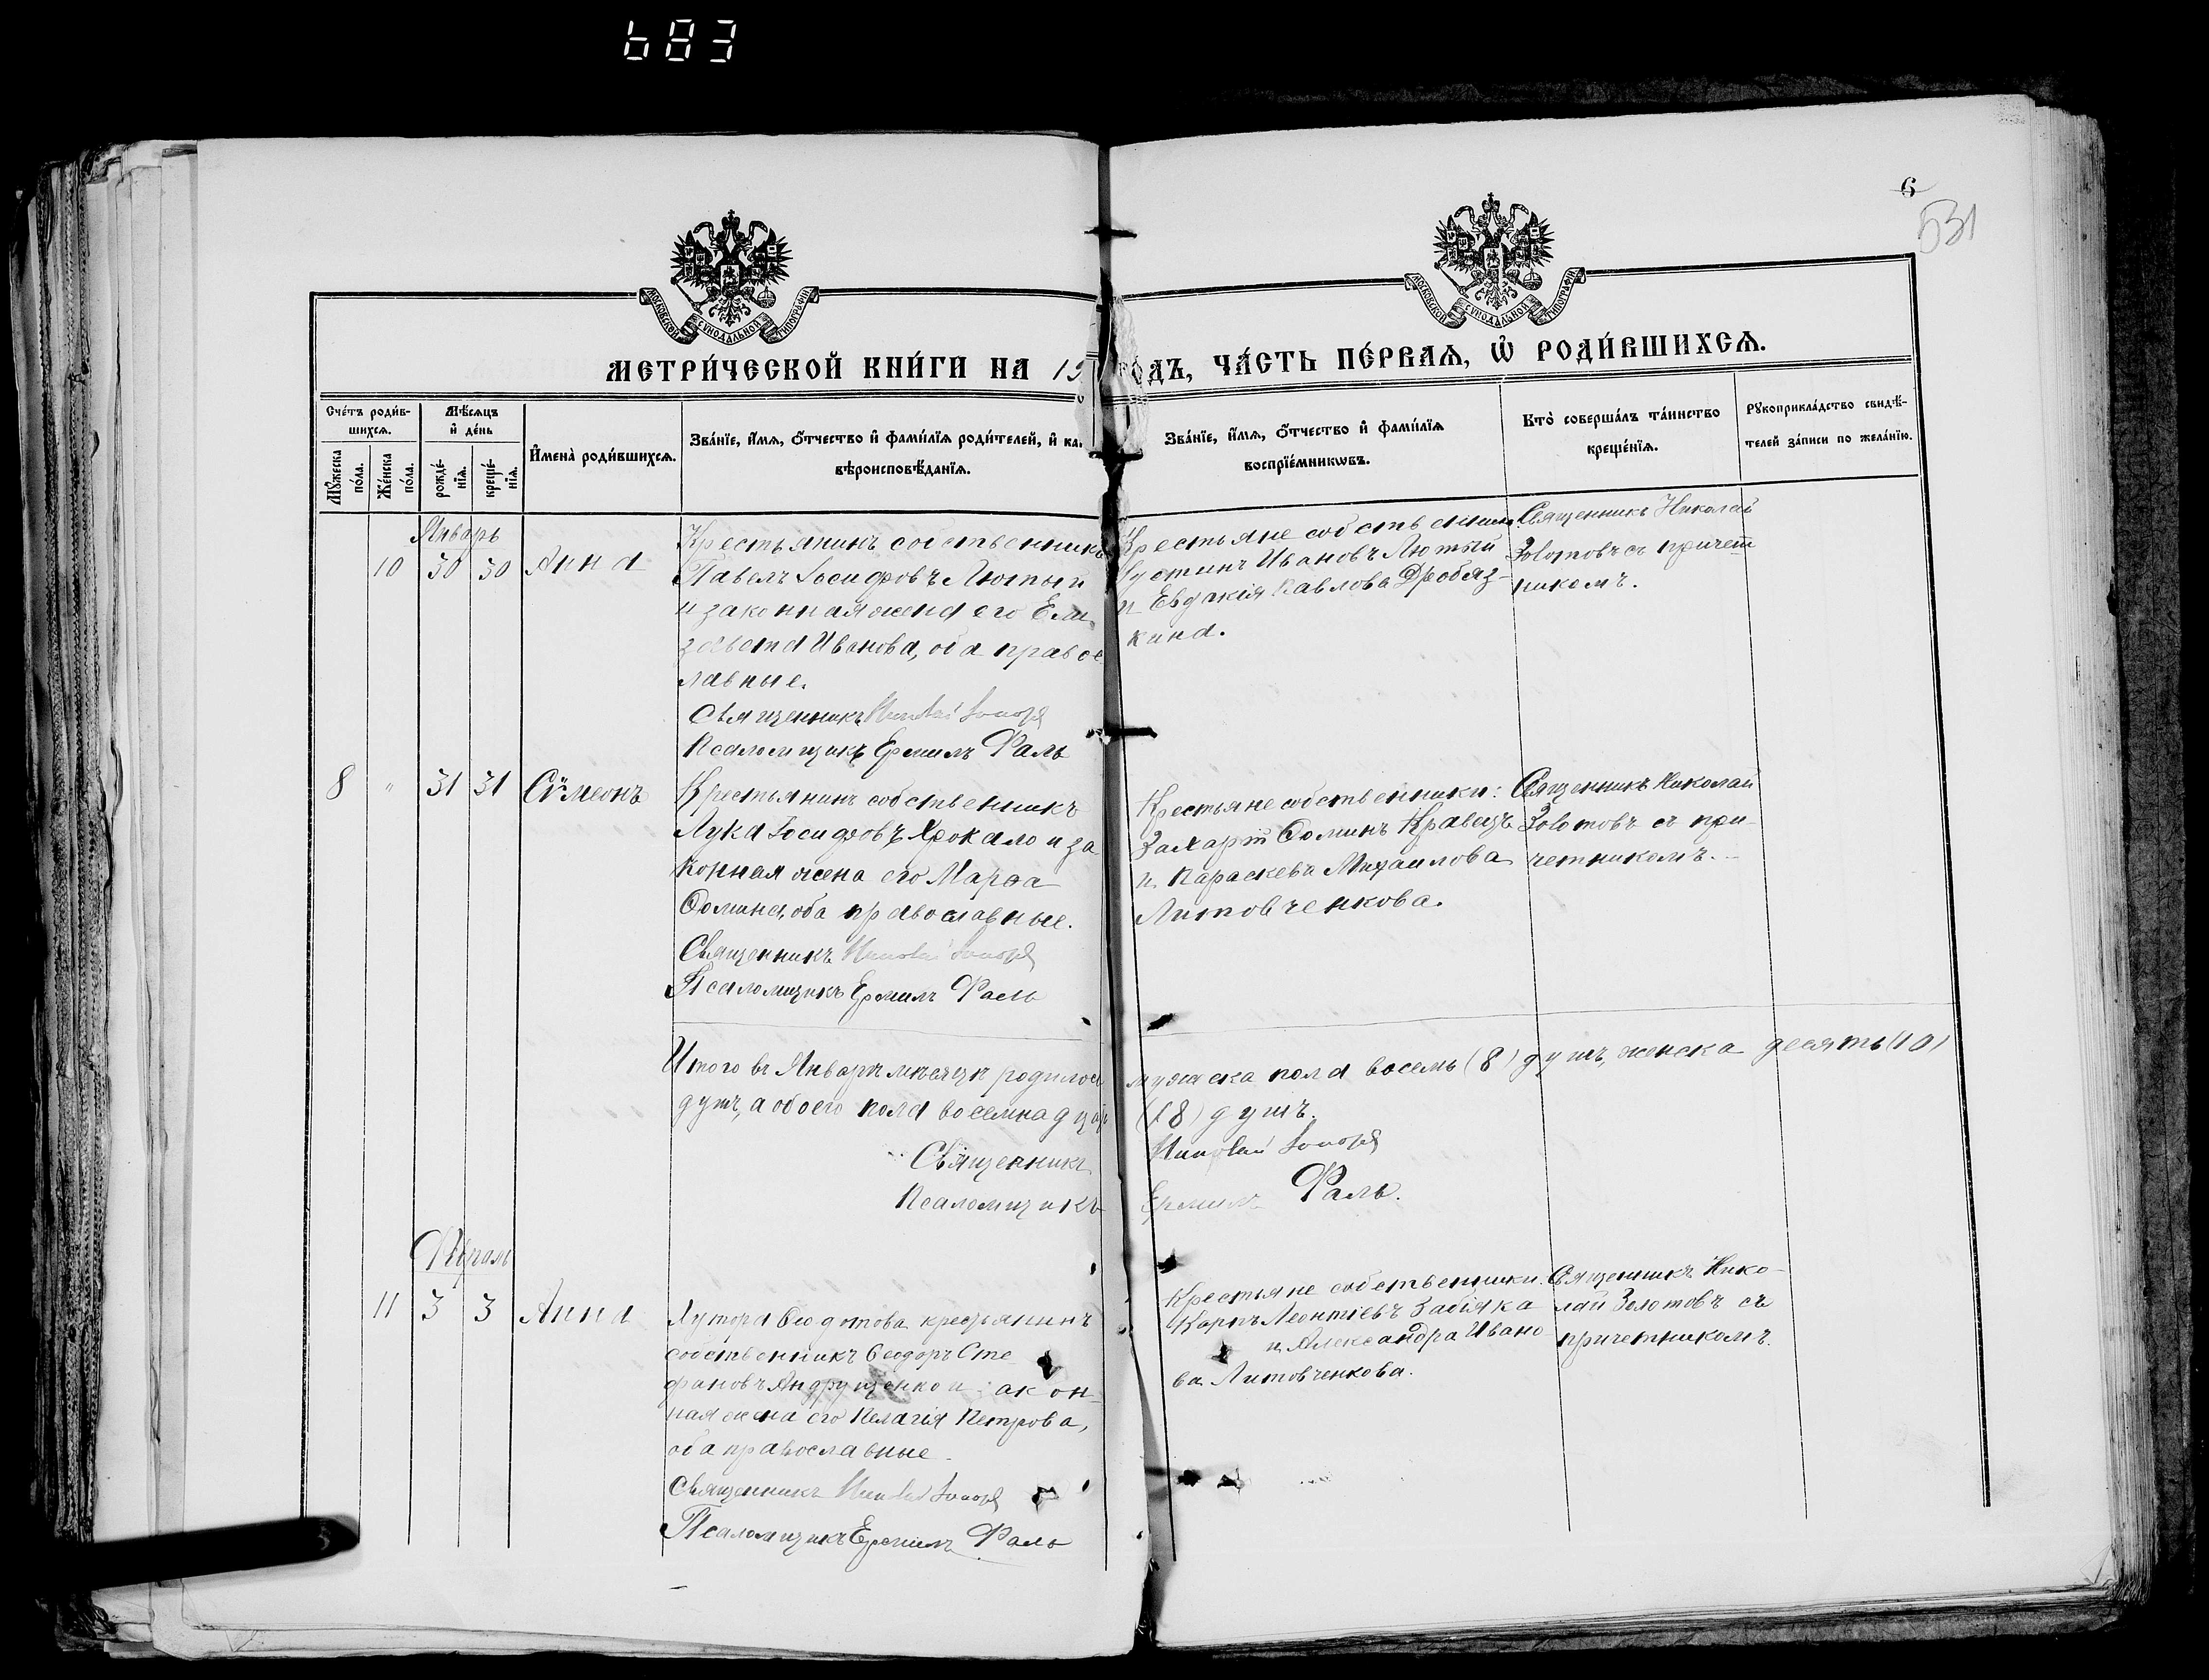 683
6
531
МОСКОВСКОЙ СѴНОДАЛЬНОЙ ТИПОГРАФИИ
МОСКОВСКОЙ СѴНОДАЛЬНОЙ ТИПОГРАФИИ
МЕТРИ́ЧЕСКОЙ КНИ́ГИ НА 19
ГО́ДЪ, ЧА́СТЬ ПЕ́РВАѦ, Ѽ РОДИ́ВШИХСѦ.
Сче́тъ роди́в-
шихсѧ.
Мꙋ́жеска
по́ла.
Же́нска
по́ла.
Мѣ́сѧцъ
и҆ де́нь
рожде́-
нїѧ.
креще́-
нїѧ.
И҆мена̀ роди́вшихсѧ.
Зва́нїе, и҆́мѧ, ѻ҆́тчество и҆ фами́лїѧ роди́телей, и҆ ка
вѣроисповѣ́данїѧ.
Зва́нїе, и҆́мѧ, ѻ҆́тчество и҆ фами́лїѧ
воспрїе́мникѡвъ.
Кто̀ соверша́лъ та́инство
креще́нїѧ.
Рꙋкоприкла́дство свидѣ́-
телей за́писи по жела́нїю.
Январь
10 30 30 Анна
Крестьянинъ собственникъ
Павелъ Іосифовъ Лютый
и законная жена его Ели
завета Иванова, оба право
славные.
Священникъ Николай Золотовъ
Псаломщикъ Ермилъ Фаль
Крестьяне собственники
Іустинъ Ивановъ Лютый
и Евдокія Павлова Дробяз-
кина.
Священникъ Николай
Золотовъ съ причет
никомъ.
8 " 31 31 Сѵмеонъ
Крестьянинъ собственникъ
Лука Іосифовъ Хрокало и за
конная жена его Марѳа
Ѳомина, оба православные.
Священникъ Николай Золотовъ
Псаломщикъ Ермилъ Фаль
Крестьяне собственники:
Захарій Ѳоминъ Кравецъ
и Параскева Михаилова
Литовченкова.
Священникъ Николай
Золотовъ съ при-
четникомъ.
Итого въ Январѣ мѣсяцѣ родилось мужеска пола восемь (8) душъ, женска десять (10)
душъ, а обоего пола восемнадцать (18) душъ.
Священникъ Николай Золотовъ
Псаломщикъ Ермилъ Фаль.
Февраль
11 3 3 Анна
Хутора Ѳедотова крестьянинъ
собственникъ Ѳеодоръ Сте
фановъ Андрущенко и закон
ная жена его Пелагія Петрова,
оба православные.
Священникъ Николай Золотовъ
Псаломщикъ Ермилъ Фаль
Крестьяне собственники
Карпъ Леонтіевъ Забіяка
и Александра Ивано
ва Литовченкова.
Священникъ Нико-
лай Золотовъ съ
причетникомъ.